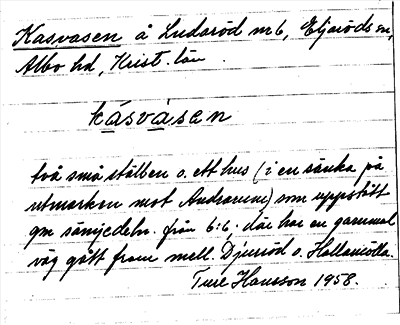 Kasvasen å Ludaröd nr 6, Eljaröds sn,
Albo hd, Krist. län.
kásvásen
två små ställen o. ett hus (i en sänka på
utmarken mot Andrarum) som uppstått
gm sämjedeln. från 6:6; där har en gammal
väg gått fram mell. Djuröd o. Hallamölla.
Ture Hansson 1958.